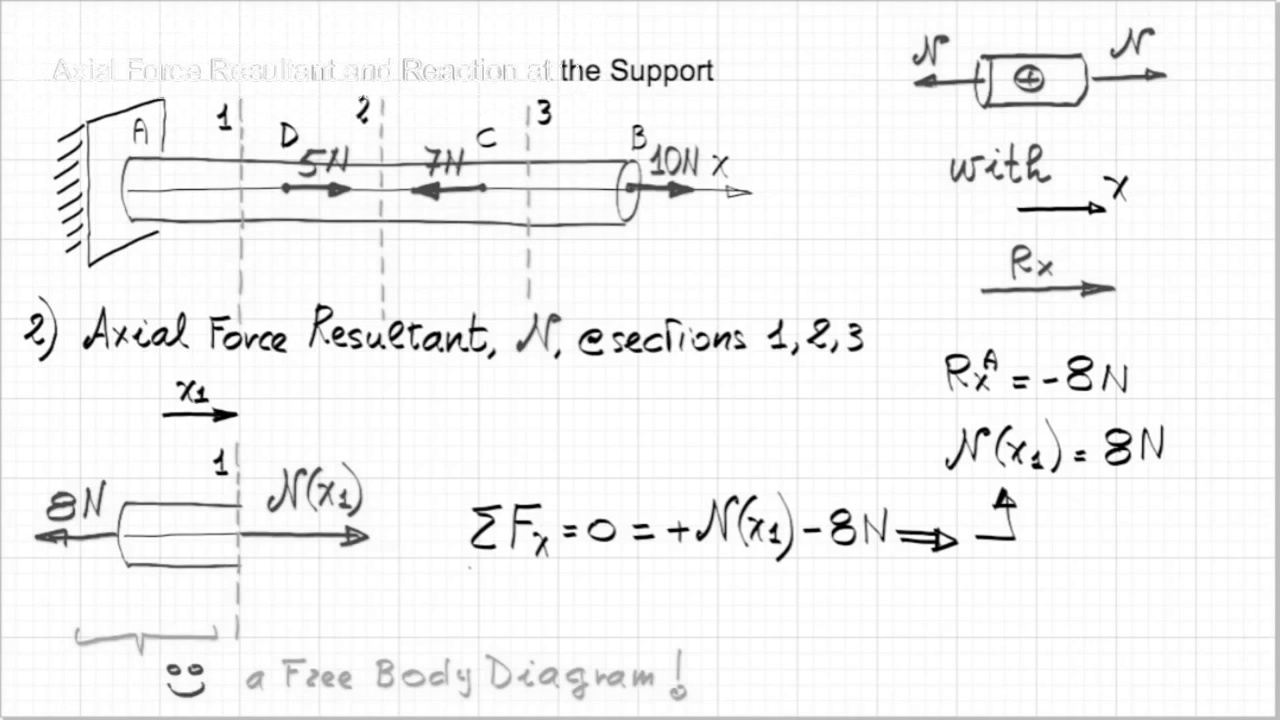 Axial Force Resultant and Reaction at the Support
N N
⊕
1 2 3
A D C B
5N 7N 10N x
with
x
Rx
2) Axial Force Resultant, N, @sections 1,2,3
RxA = -8N
x1
N(x1) = 8N
1
8N N(x1)
ΣFx = 0 = +N(x1) - 8N ⇒
a Free Body Diagram!